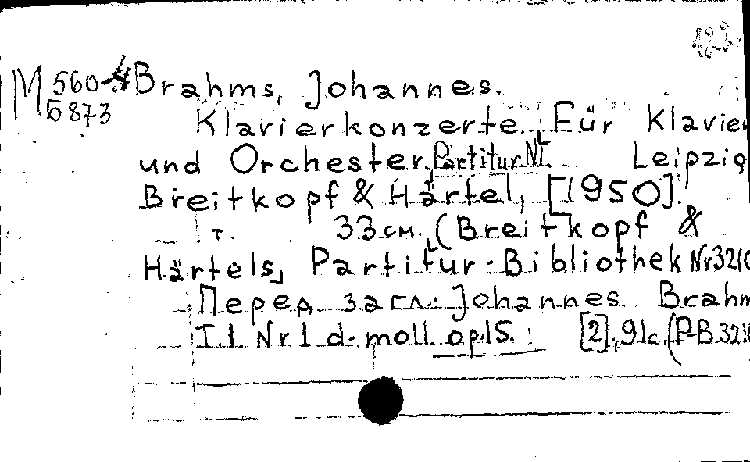 M 560-4 Brahms, Johannes.
Б873
Klavierkonzerte. Für Klavier
und Orchester. Partitur. Leipzig
Breitkopf & Härtel, [1950].
т. 33см. (Breitkopf &
Härtels, Partitur-Bibliothek Nr 3210
Перед загл.: Johannes Brahm
T.I Nr 1 d-moll op.15. [2], 91c. (P-B. 32